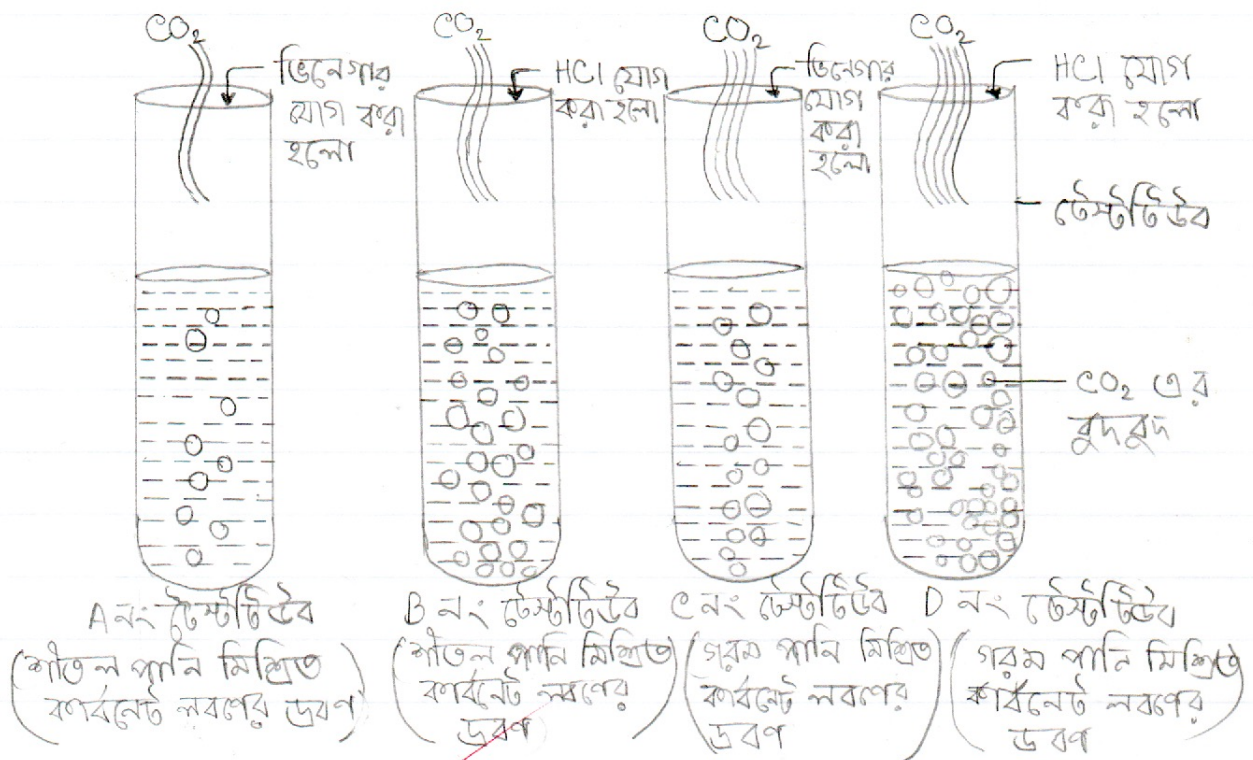 CO₂
ভিনেগার
যোগ করা
হলো
CO₂
HCl যোগ
করা হলো
CO₂
ভিনেগার
যোগ
করা
হলো
CO₂
HCl যোগ
করা হলো
টেস্টটিউব
CO₂ এর
বুদবুদ
A নং টেস্টটিউব
(শীতল পানি মিশ্রিত
কার্বনেট লবণের দ্রবণ)
B নং টেস্টটিউব
(শীতল পানি মিশ্রিত
কার্বনেট লবণের
দ্রবণ)
C নং টেস্টটিউব
(গরম পানি মিশ্রিত
কার্বনেট লবণের
দ্রবণ)
D নং টেস্টটিউব
(গরম পানি মিশ্রিত
কার্বনেট লবণের
দ্রবণ)